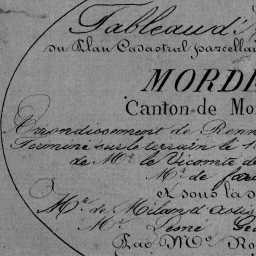 Tableau d'
du Plan Cadastral parcella
MORD
Canton de Mo
Arrondissement de Renn
Terminé sur le terrain le 1
de Mr. le Vicomte de
Mr. de
et sous la s
Mr. de
Mr. Leone Ge
Par Mr. Ro